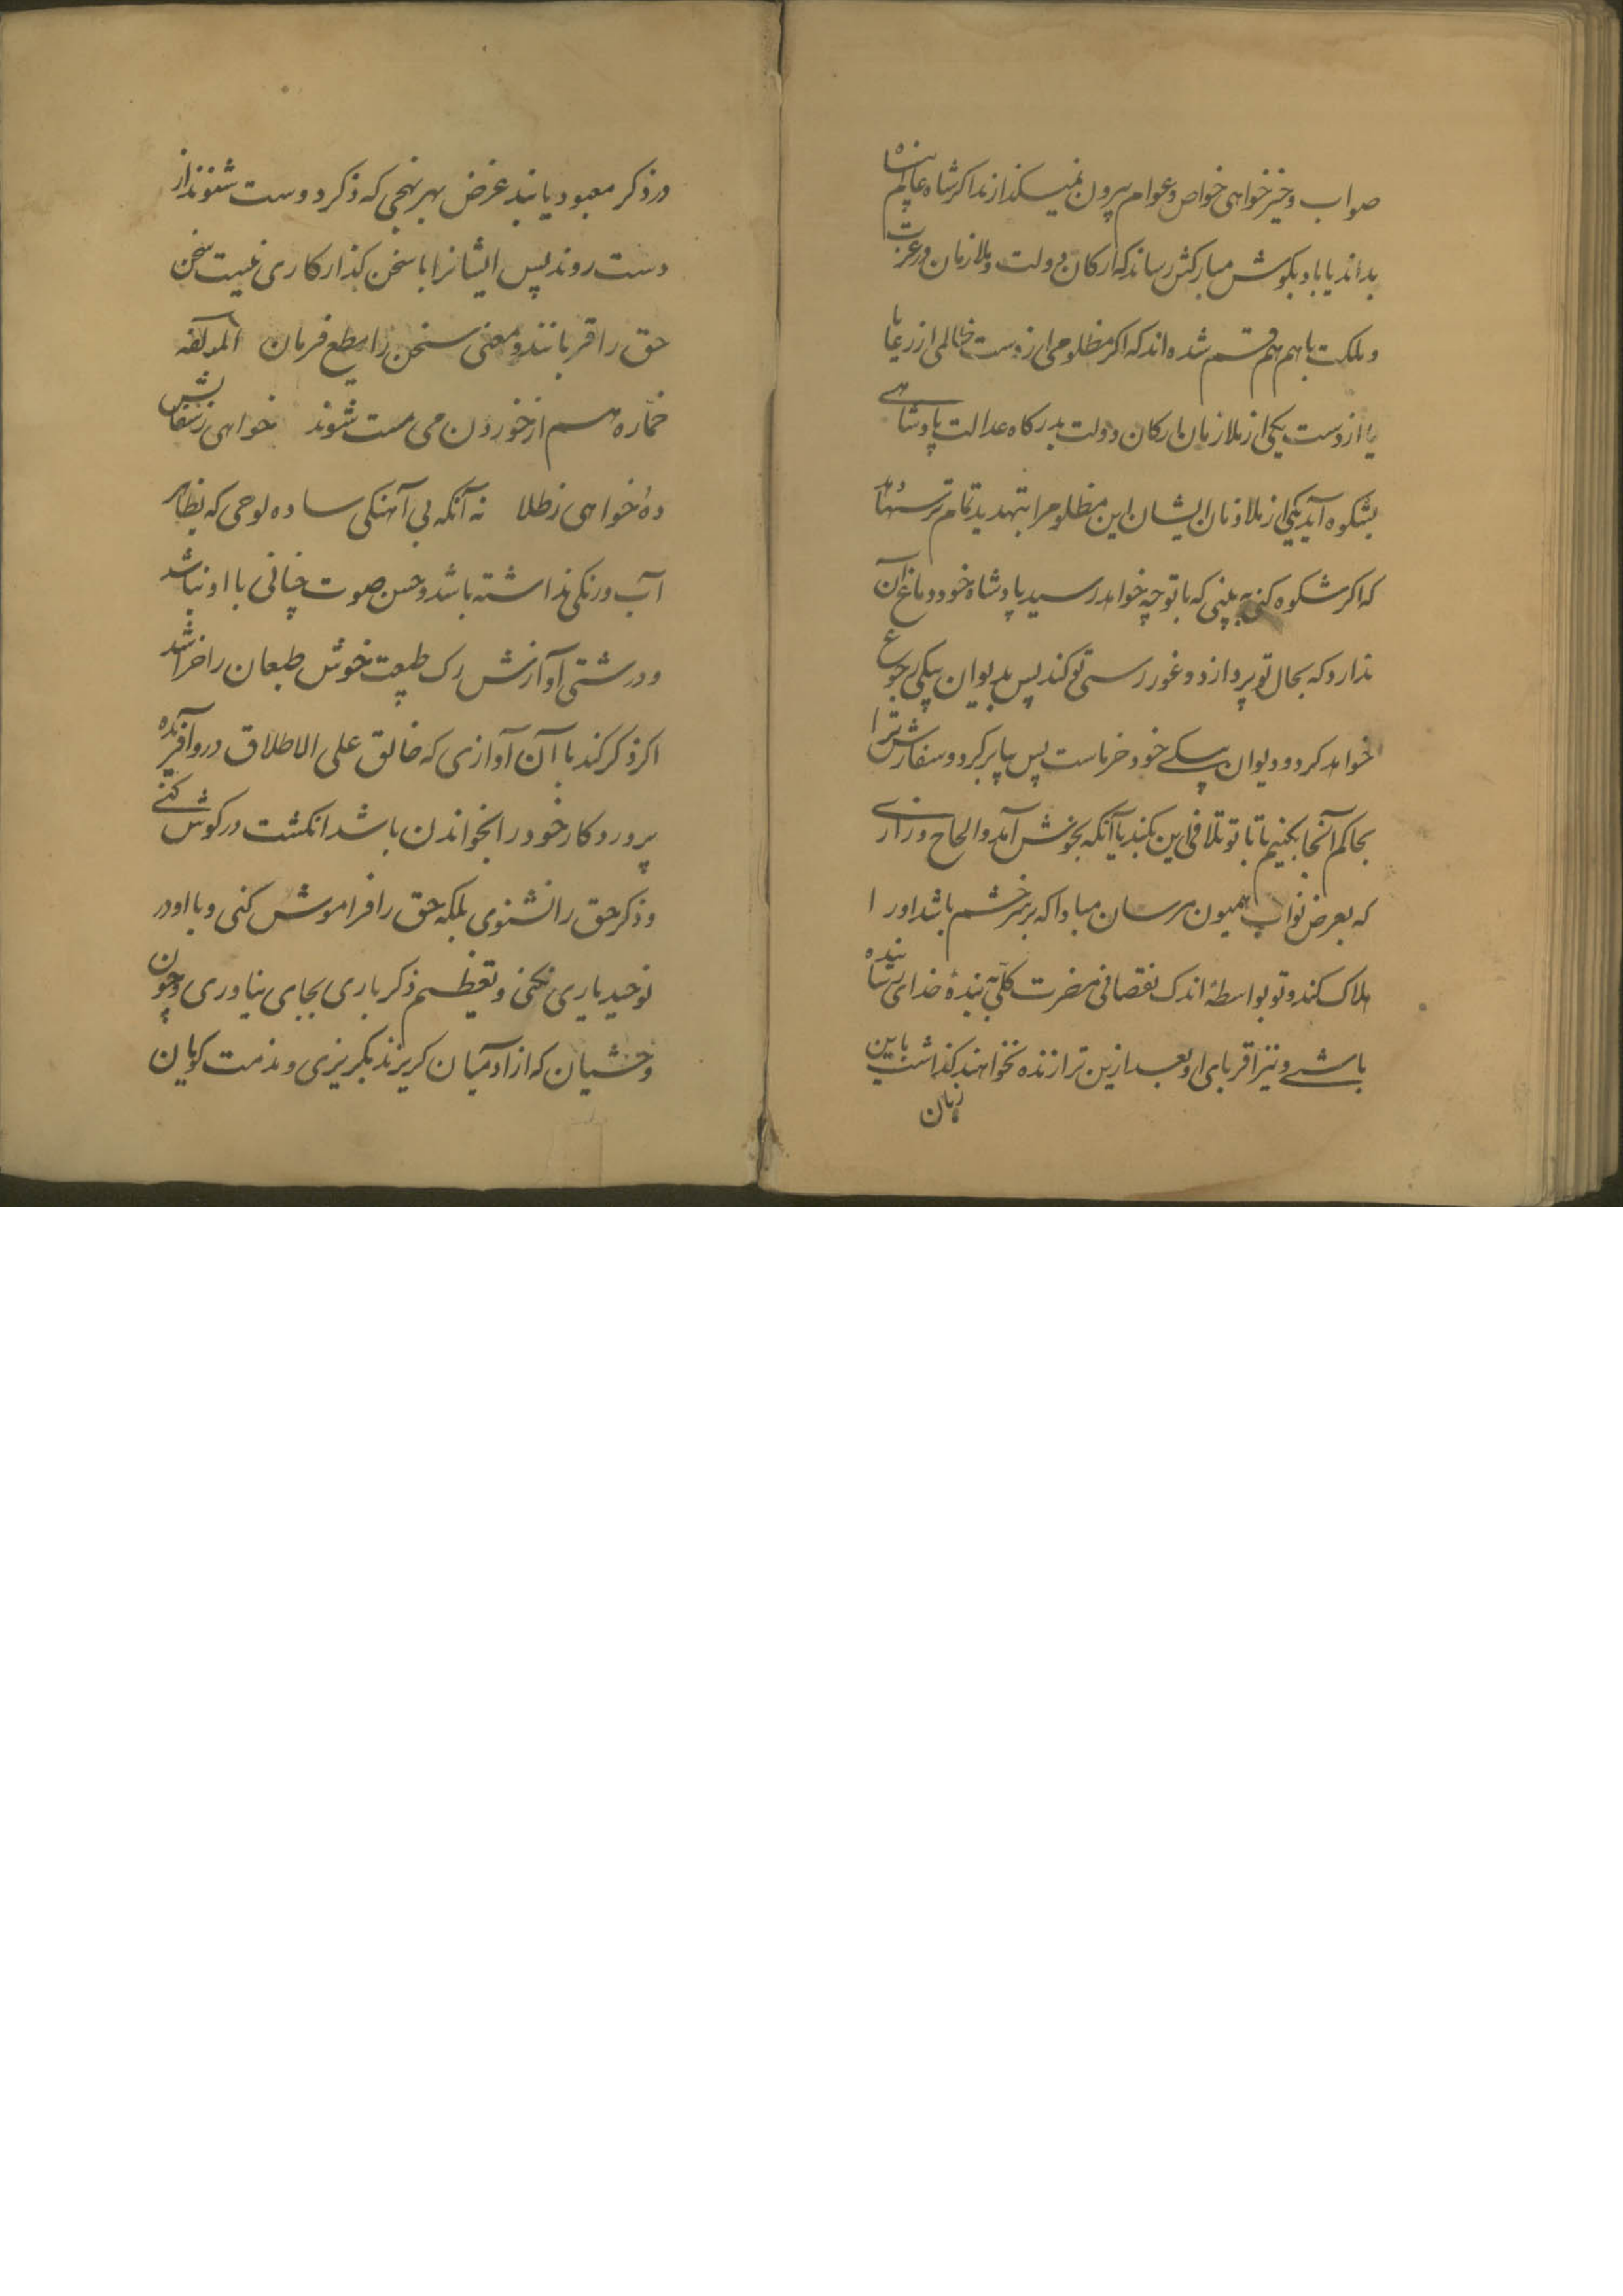 صواب و خیر خواهی خواص و عوام بیرون نمیکذارند اکر شاه عالم پناه
بداند یا باد بکوش مبارکش رساند که ارکان دولت و ملازمان در عزت
و ملکت باهم هم قسم شده اند که اکر مظلومی از دست ظالمی از رعایا
یا از دست یکی از ملازمان ارکان دولت بدرکاه عدالت پادشاهی
بشکوه آید یکی از ملازمان ایشان این مظلوم را بتهدید تمام
که اکر شکوه کنی به بینی که با تو چه خواهد رسید پادشاه خود دماغ آن
ندارد که بحال تو پردازد و غور رسی تو کند پس بدیوان بیکی رجوع
خواهد کرد و دیوان بیکی خود خر ماست پس بیا بر کرد و سفارش ترا
بحاکم آنجا بکنیم تا با تو تلافی این بکند یا آنکه بجوش آمد و الحاح و زاری
که بعرض نواب همیون مرسان مبادا که بر سر خشم باشد او را
هلاک کند و تو بواسطهٔ اندک نقصانی مضرت کلی به بندهٔ خدای رسانیده
باشی و نیز اقربای او بعد ازین ترا زنده نخواهند کذاشت باین
زبان
در ذکر معبود یابند غرض بهر نهجی که ذکر دوست شنوند از
دست روند پس ایشانرا با سخن کذار کاری نیست سخن
حق را قربانند و معنی سخن را مطیع فرمان لمؤلفه
خمّاره هم از خوردن می مست شوند خواهی ز سفالش
ده خواهی ز طلا نه آنکه بی آهنکی ساده لوحی که بظاهر
آب و رنکی نداشته باشد و حسن صوت چنانی با او نباشد
و درشتی آوازش رک طبیعت خوش طبعان را خراشد
اکر ذکر کند با آن آوازی که خالق علی الاطلاق در او آفریده
پروردکار خود را بخواندن باشد انکشت در کوش کنی
و ذکر حق را نشنوی بلکه حق را فراموش کنی و با او در
توحید یاری نکنی و تعظیم ذکر باری بجای نیاوری و چون
وحشیان که از آدمیان کریزند بکریزی و مذمت کویان